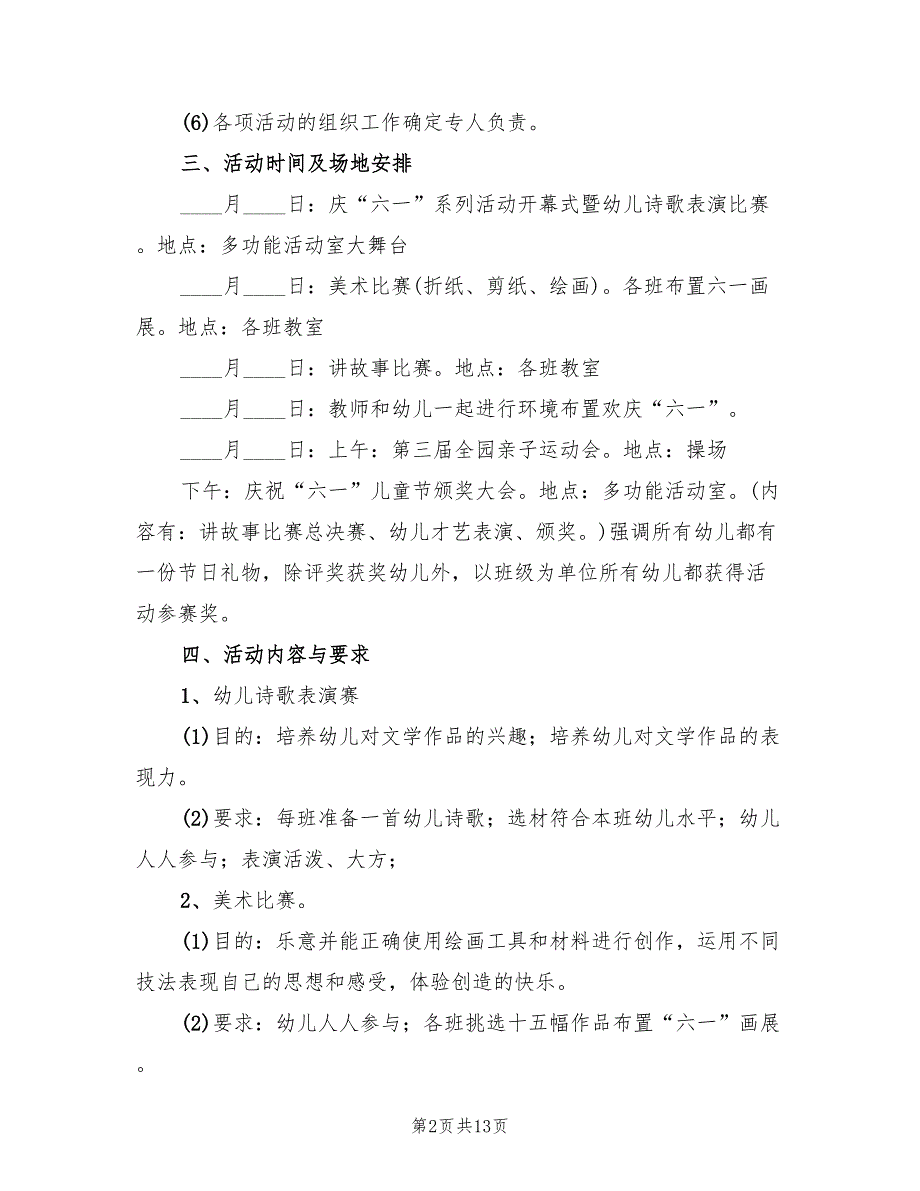 (6)各项活动的组织工作确定专人负责。
三、活动时间及场地安排
____月____日：庆“六一”系列活动开幕式暨幼儿诗歌表演比赛
。地点：多功能活动室大舞台
____月____日：美术比赛(折纸、剪纸、绘画)。各班布置六一画
展。地点：各班教室
____月____日：讲故事比赛。地点：各班教室
____月____日：教师和幼儿一起进行环境布置欢庆“六一”。
____月____日：上午：第三届全园亲子运动会。地点：操场
下午：庆祝“六一”儿童节颁奖大会。地点：多功能活动室。(内
容有：讲故事比赛总决赛、幼儿才艺表演、颁奖。)强调所有幼儿都有
一份节日礼物，除评奖获奖幼儿外，以班级为单位所有幼儿都获得活
动参赛奖。
四、活动内容与要求
1、幼儿诗歌表演赛
(1)目的：培养幼儿对文学作品的兴趣；培养幼儿对文学作品的表
现力。
(2)要求：每班准备一首幼儿诗歌；选材符合本班幼儿水平；幼儿
人人参与；表演活泼、大方；
2、美术比赛。
(1)目的：乐意并能正确使用绘画工具和材料进行创作，运用不同
技法表现自己的思想和感受，体验创造的快乐。
(2)要求：幼儿人人参与；各班挑选十五幅作品布置“六一”画展
。
第2页共13页